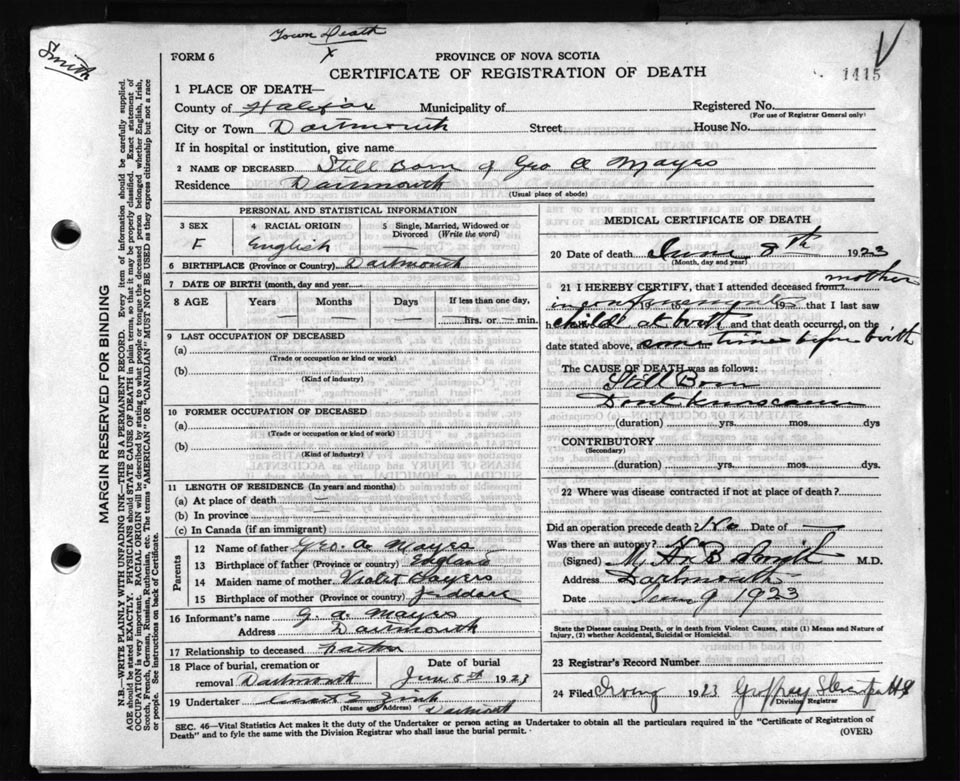 Town Death
x
Smith
FORM 6
PROVINCE OF NOVA SCOTIA
CERTIFICATE OF REGISTRATION OF DEATH
1415
1 PLACE OF DEATH—
County of Halifax Municipality of Registered No.
(For use of Registrar General only)
City or Town Dartmouth Street House No.
If in hospital or institution, give name
2 NAME OF DECEASED Still Born of Geo A Mayes
Residence Dartmouth
(Usual place of abode)
MARGIN RESERVED FOR BINDING
N.B.—WRITE PLAINLY WITH UNFADING INK—THIS IS A PERMANENT RECORD. Every item of information should be carefully supplied.
AGE should be stated EXACTLY. PHYSICIANS should STATE CAUSE OF DEATH in plain terms, so that it may be properly classified. Exact statement of
OCCUPATION is very important. RACIAL ORIGIN will be described by stating to what people or tongue the deceased person belonged whether English, Irish,
Scotch, French, German, Russian, Ruthenian, etc. The terms "AMERICAN" OR "CANADIAN" MUST NOT BE USED as they express citizenship but not a race
or people. See instructions on back of Certificate.
PERSONAL AND STATISTICAL INFORMATION
3 SEX 4 RACIAL ORIGIN 5 Single, Married, Widowed or Divorced (Write the word)
F English —
6 BIRTHPLACE (Province or Country) Dartmouth
7 DATE OF BIRTH (month, day and year)
8 AGE Years Months Days If less than one day,
— — — hrs. or — min.
9 LAST OCCUPATION OF DECEASED
(a)
(Trade or occupation or kind or work)
(b)
(Kind of industry)
10 FORMER OCCUPATION OF DECEASED
(a)
(Trade or occupation or kind of work)
(b)
(Kind of industry)
11 LENGTH OF RESIDENCE (In years and months)
(a) At place of death —
(b) In province —
(c) In Canada (if an immigrant)
Parents
12 Name of father Geo. A Mayes
13 Birthplace of father (Province or country) England
14 Maiden name of mother Violet Sayers
15 Birthplace of mother (Province or country)
16 Informant's name G. A. Mayes
Address Dartmouth
17 Relationship to deceased Father
18 Place of burial, cremation or Date of burial
removal Dartmouth June 8th 1923
19 Undertaker Zink
(Name and Address) Dartmouth
MEDICAL CERTIFICATE OF DEATH
20 Date of death June 8th 1923
(Month, day and year)
21 I HEREBY CERTIFY, that I attended deceased from mother
in confinement 19 to 192 that I last saw
h child at birth and that death occurred, on the
date stated above, at some time before birth
The CAUSE OF DEATH was as follows:
Still Born
Dont know cause
(duration) yrs. mos. dys
CONTRIBUTORY
(Secondary)
(duration) yrs. mos. dys.
22 Where was disease contracted if not at place of death?
Did an operation precede death? No Date of —
Was there an autopsy? No
(Signed) B Smith M.D.
Address Dartmouth
Date June 9 1923
State the Disease causing Death, or in death from Violent Causes, state (1) Means and Nature of
Injury, (2) whether Accidental, Suicidal or Homicidal.
23 Registrar's Record Number
24 Filed 1923 Geoffrey
Division Registrar
SEC. 46—Vital Statistics Act makes it the duty of the Undertaker or person acting as Undertaker to obtain all the particulars required in the "Certificate of Registration of
Death" and to fyle the same with the Division Registrar who shall issue the burial permit.
(OVER)